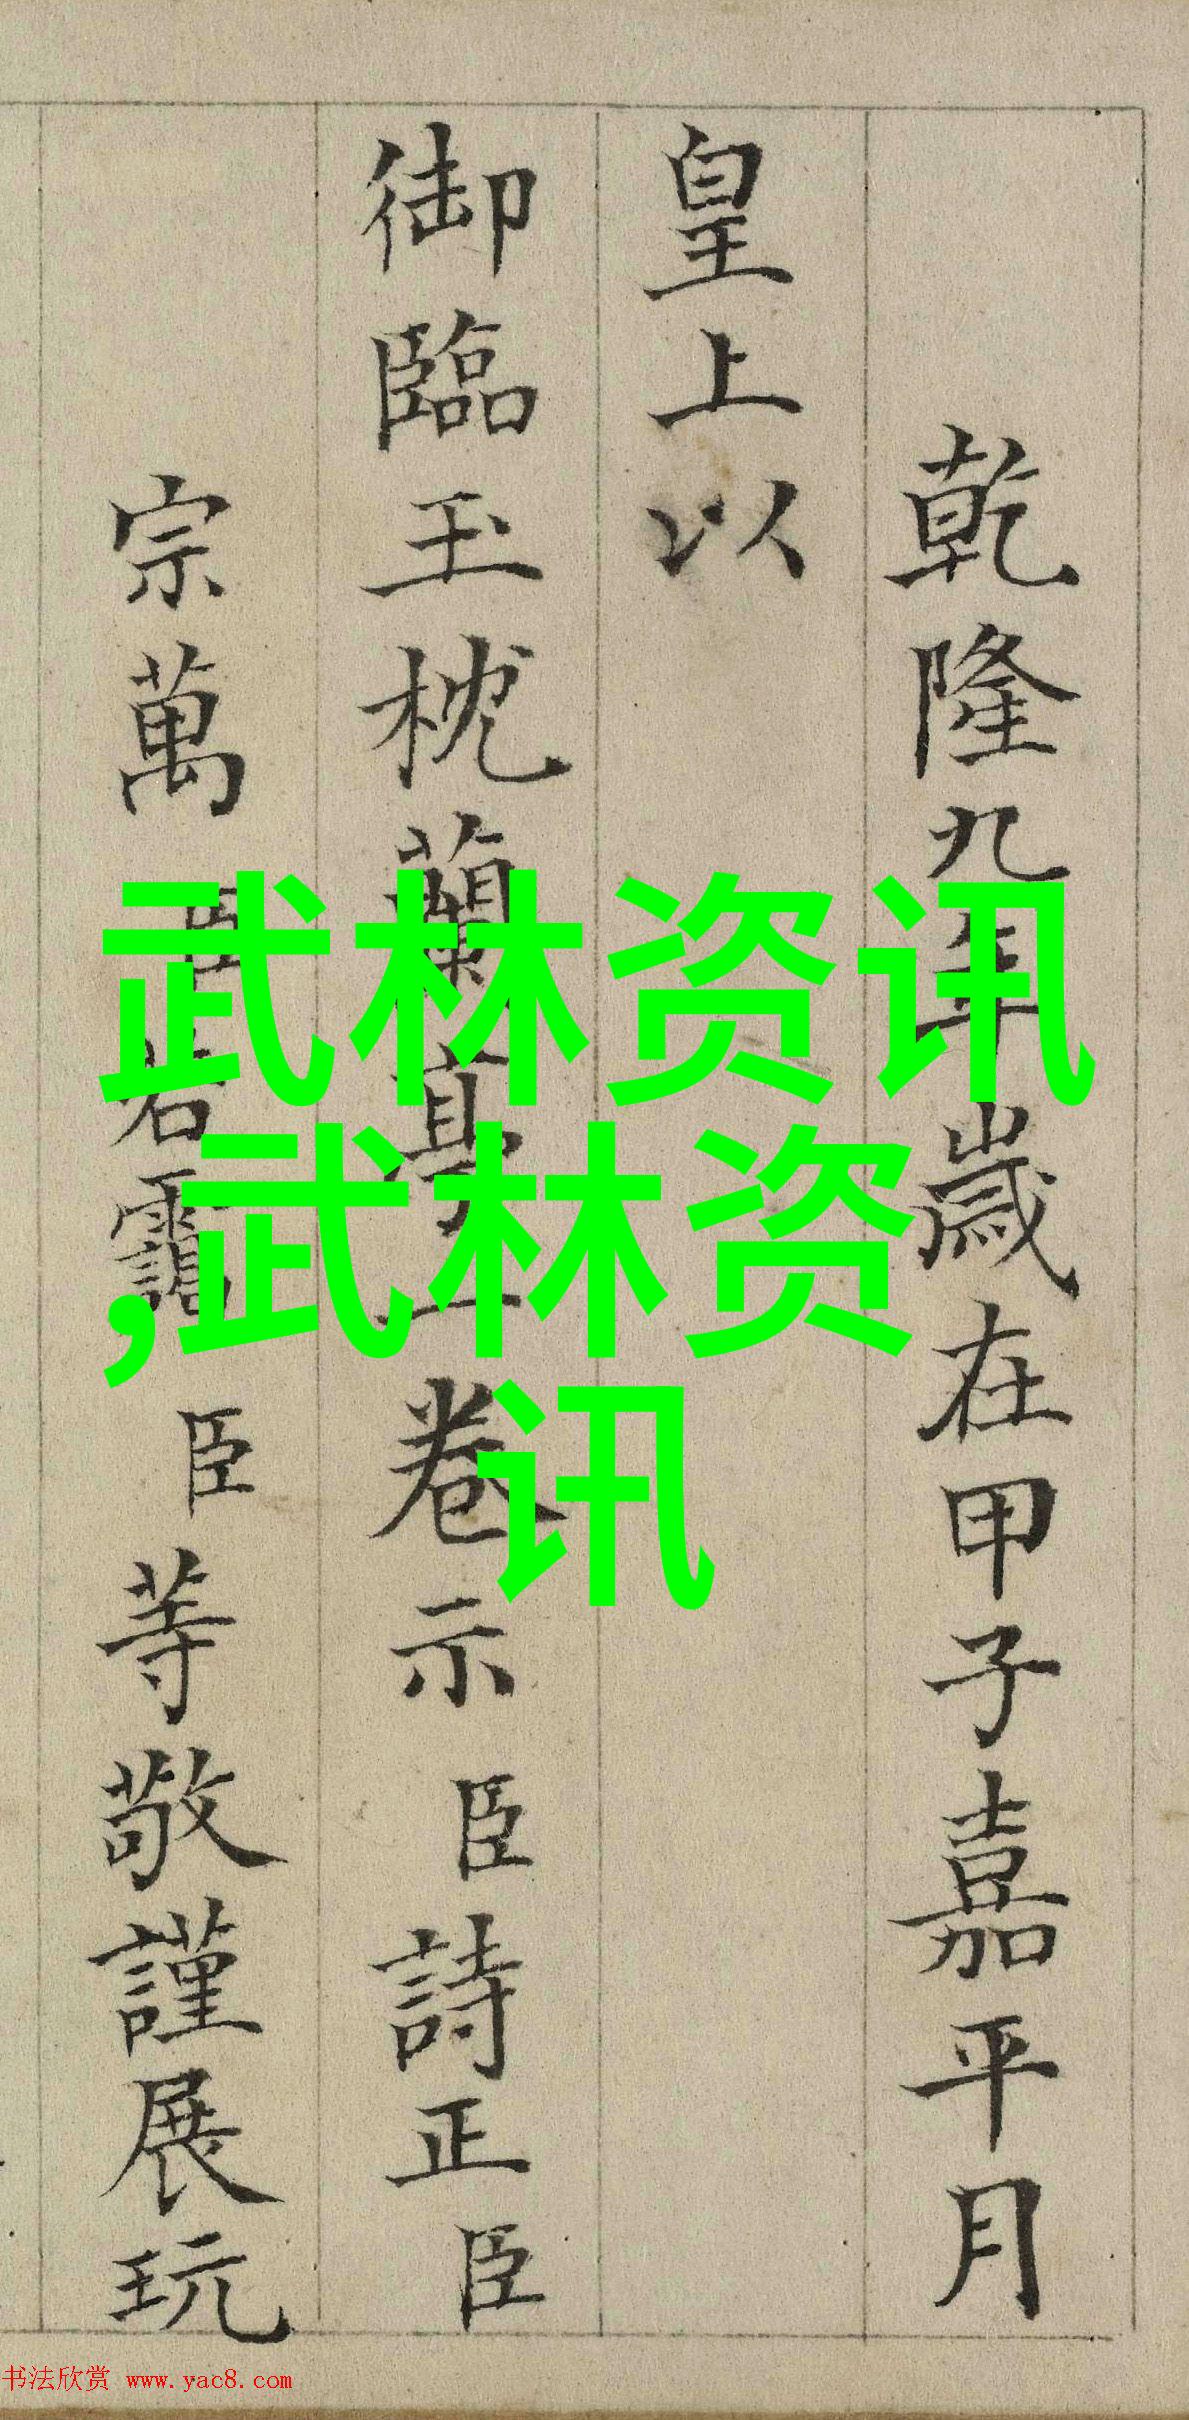 乾隆九年歲在甲子嘉平月
皇上以
御臨玉枕蘭亭一卷示臣詩正臣
宗萬臣若靄臣等敬謹展玩
武林资讯
,武林资
讯
书法欣赏 www.yac8.com